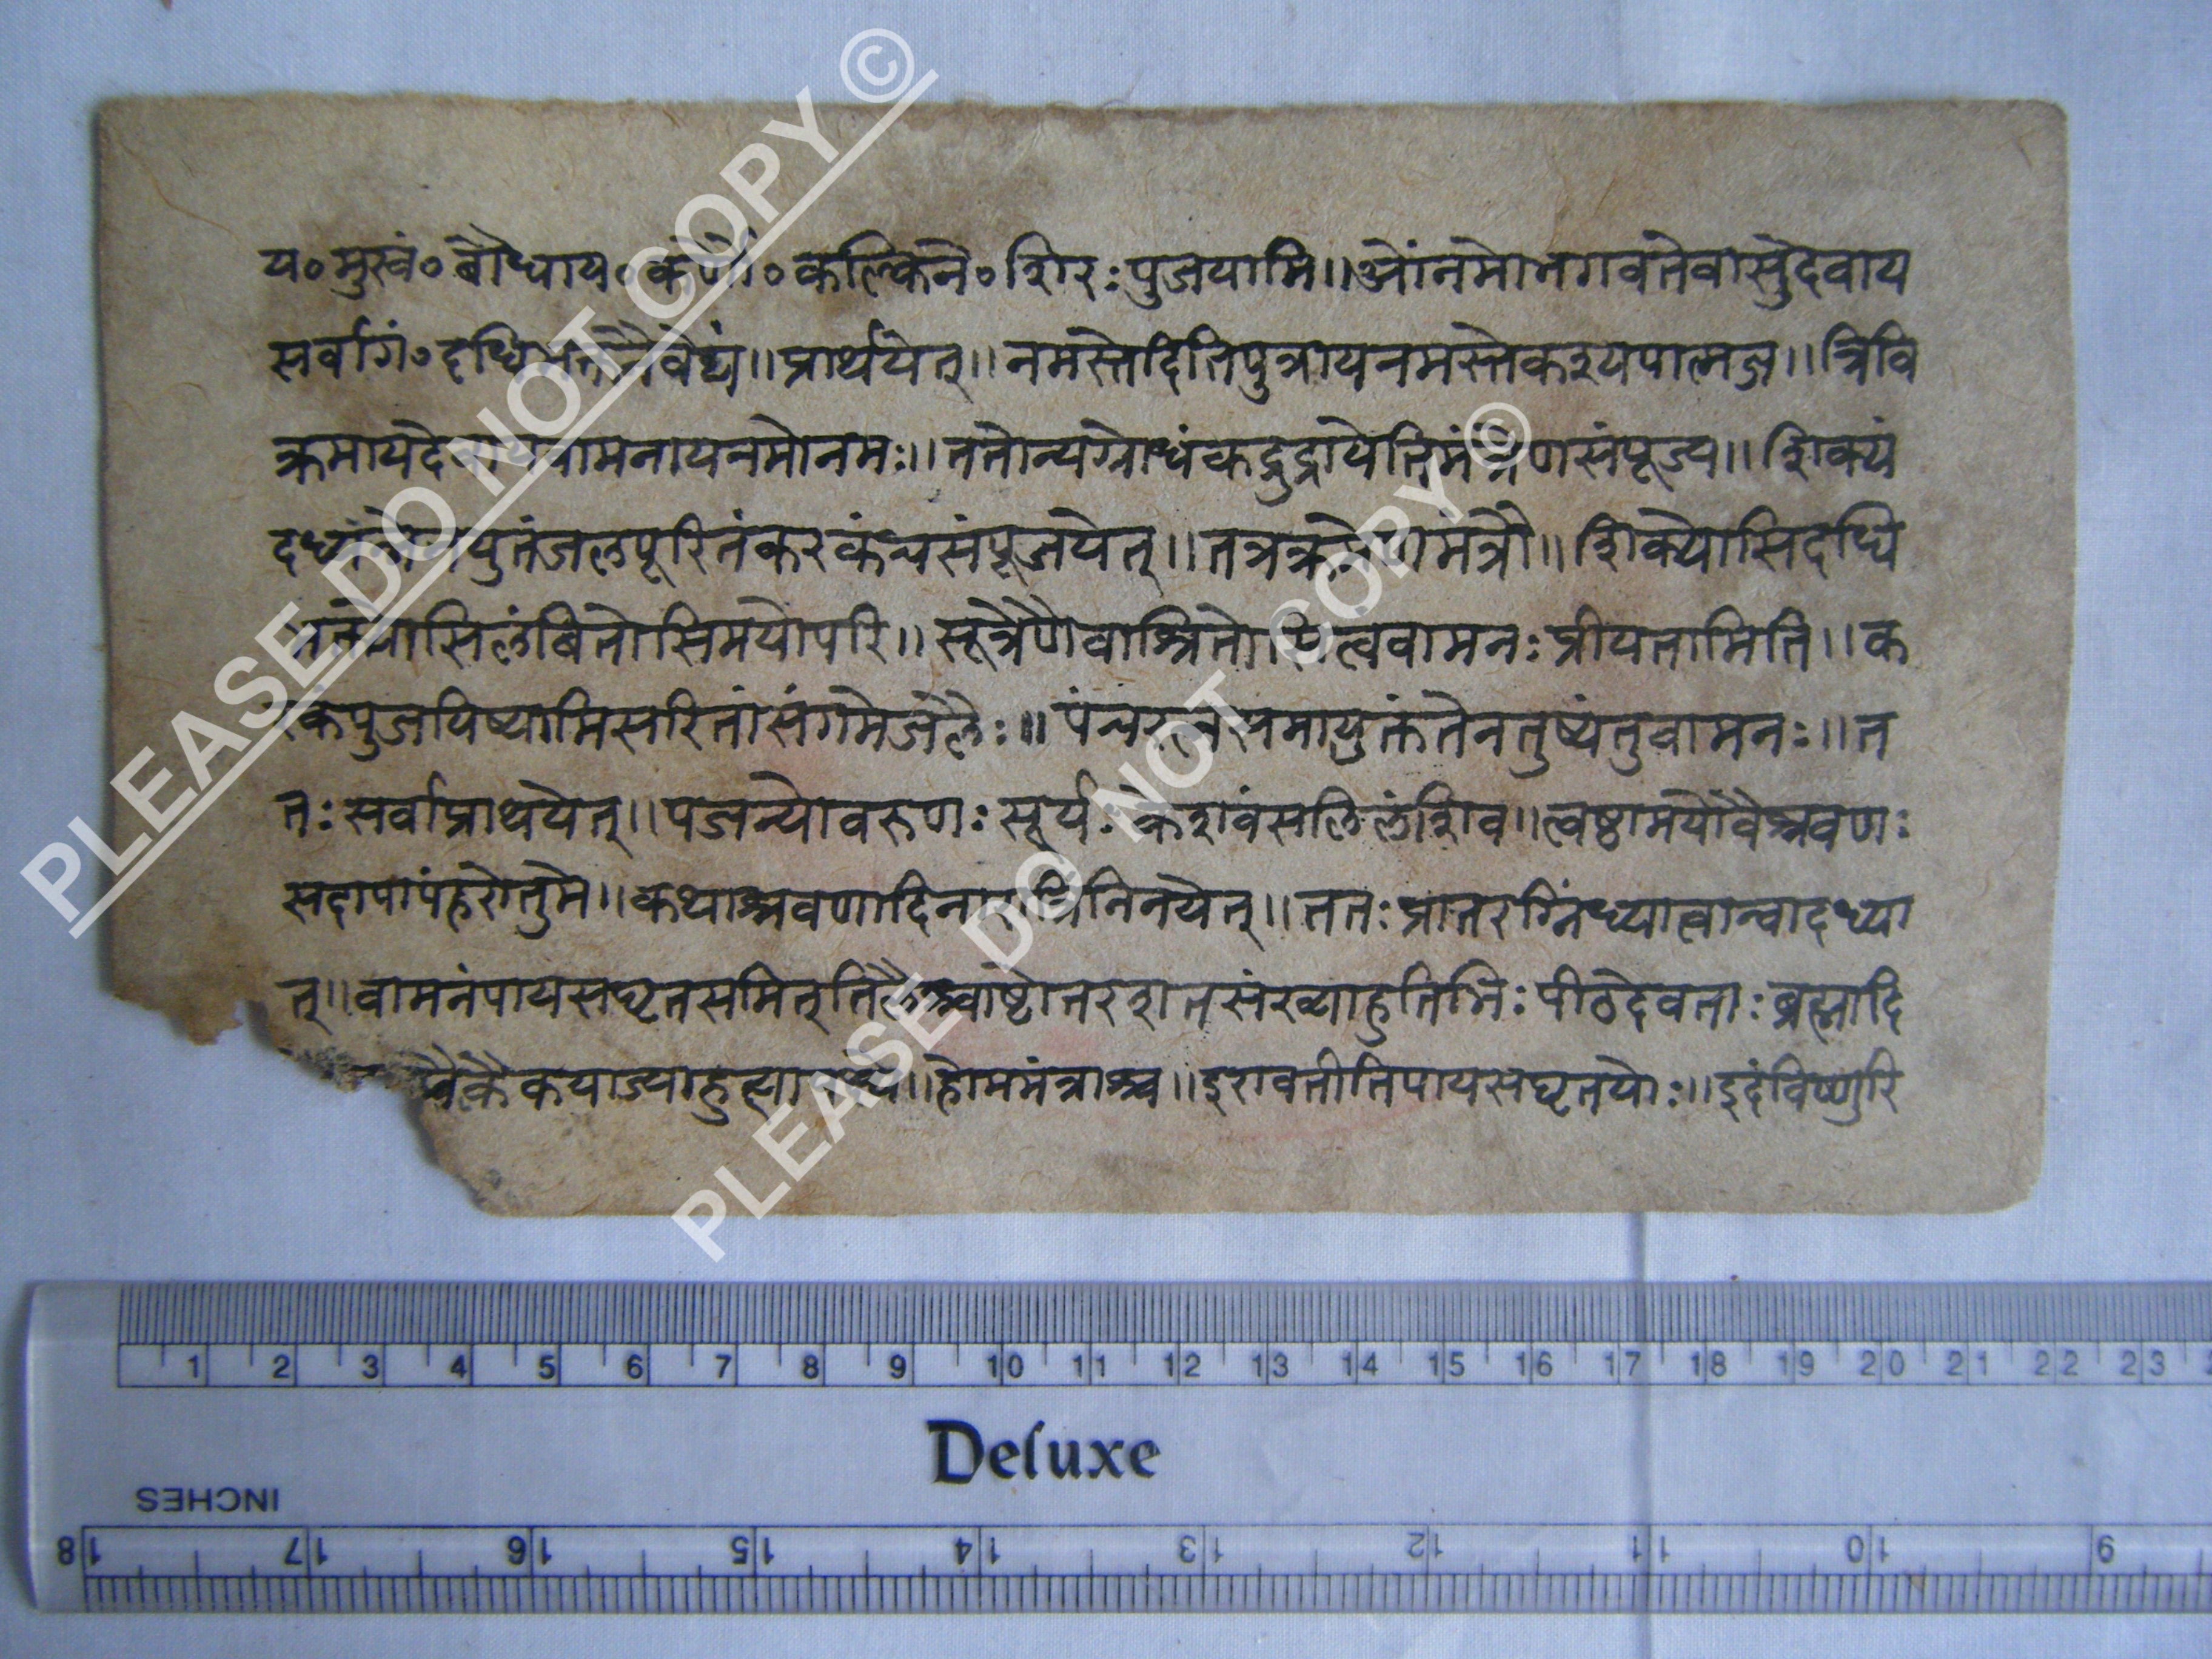 य॰मुखं॰बौधाय॰कर्णौ॰कल्किने॰शिरःपुजयामि॥ओंनमोभगवतेवासुदेवाय
सर्वागं॰दधिभक्तनैवेद्यं॥प्रार्थयेत्॥नमस्तेदितिपुत्रायनमस्तेकश्यपात्मज॥त्रिवि
क्रमायदेवायवामनायनमोनमः॥ततोन्यग्रोधंकद्रुद्रायेतिमंत्रेणसंपूज्य॥शिक्यं
युतंजलपूरितंकरकंचसंपूजयेत्॥तत्रक्रमेणमंत्रौ॥शिक्योसिदधि
लंबितोसिमयोपरि॥सूत्रेणैवाश्रितोसित्ववामनःप्रीयतामिति॥क
रकंपुजयिष्यामिसरितांसंगमेजलैः॥पंचरत्नसमायुक्तंतेनतुष्यंतुवामनः॥त
तःसर्वाप्रार्थयेत्॥पर्जन्योवरुणःसूर्यःकेशवंसलिलंशिव॥त्वष्ठामयोवैश्रवणः
सदापापंहरोतुमे॥कथाश्रवणादिनारात्रिंनिनयेत्॥ततःप्रातरग्निंध्यात्वान्वादध्या
त्॥वामनंपायसघृतसमित्तिलैश्चाष्टोत्तरशतसंख्याहुतिभिःपीठदेवताःब्रह्मादि
श्चैकैकयाज्याहुत्या॥होममंत्राश्च॥इरावतीतिपायसघृतयोः॥इदंविष्णुरि
PLEASE DO NOT COPY ©
PLEASE DO NOT COPY ©
1 2 3 4 5 6 7 8 9 10 11 12 13 14 15 16 17 18 19 20 21 22 23
Deluxe
INCHES
18 17 16 15 14 13 12 11 10 9